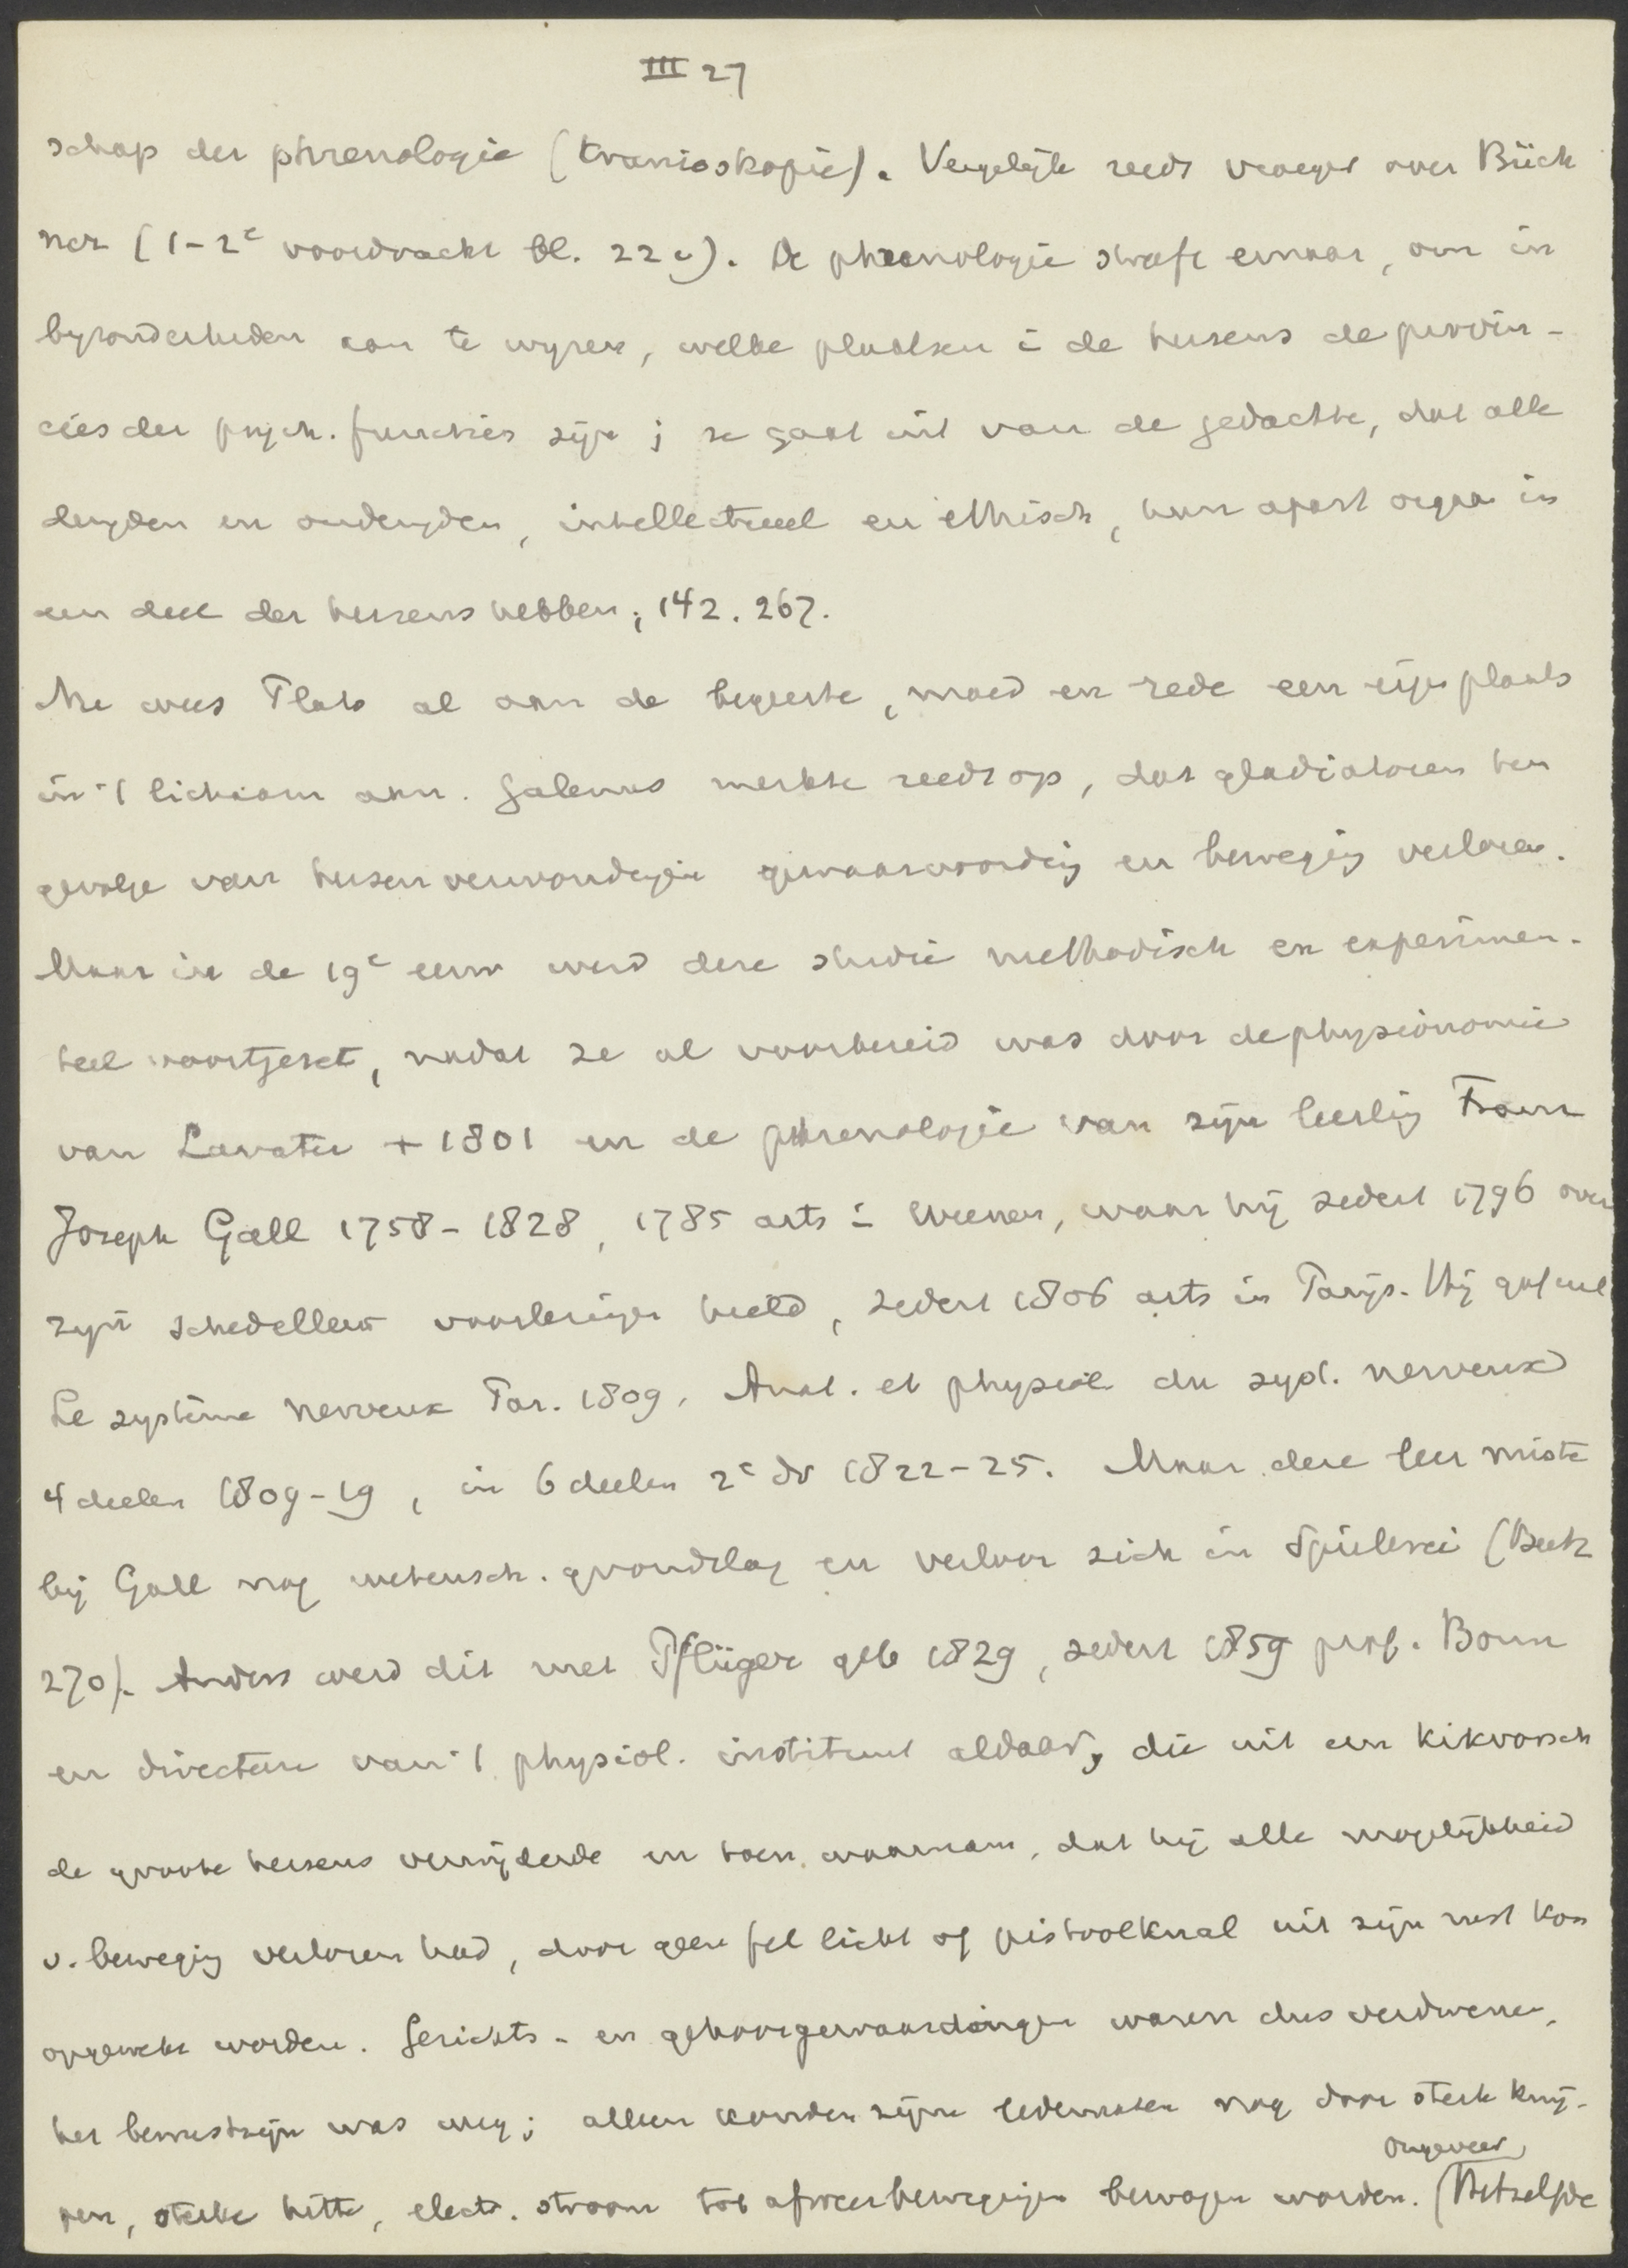 III 27
schap der phrenologie (Kranioskopie). Vergelijk reeds vroeger over Büch
ner (1-2e voordracht bl. 22 v). De phrenologie streeft ernaar, om in
byzonderheden aan te wyzen, welke plaatsen i de hersens de provin-
cies der psych. functies zijn; ze gaat uit van de gedachte, dat alle
deugden en ondeugden, intellectueel en ethisch, hun apart orgaan in
een deel der hersens hebben; 142. 267.
Nu wees Plato al aan de begeerte, moed en rede een eigen plaats
in 't lichaam aan. Galenus merkte reeds op, dat gladiatoren ten
gevolge van hersenverwondingen gewaarwording en beweging verloren.
Maar in de 19e eeuw werd deze studie methodisch en experimen-
teel voortgezet, nadat ze al voorbereid was door de physionomie
van Lavater + 1801 en de phrenologie van zijn leerling Franz
Joseph Gall 1758-1828, 1785 arts i Weenen, waar hij sedert 1796 over
zijn schedelleer voorlezingen hield, sedert 1806 arts in Parijs. Hij gaf uit
Le système nerveux Par. 1809, Anat. et physiol du syst. nerveux
4 deelen 1809-19, in 6 deelen 2e dr 1822-25. Maar deze leer miste
bij Gall nog wetensch. grondslag en verloor zich in Spielerei (Beck
270). Anders werd dit met Pflüger geb 1829, sedert 1859 prof. Bonn
en directeur van 't physiol. instituut aldaar, die uit een kikvorsch
de groote hersens verwijderde en toen waarnam, dat hij alle mogelijkheid
v. beweging verloren had, door geen fel licht of pistoolknal uit zijn rust kon
opgewekt worden. Gezichts- en gehoorgewaardingen waren dus verdwenen,
het bewustzijn was weg; alleen konden zijne ledematen nog door sterk knij-
ongeveer
pen, sterke hitte, electr. stroom tot afweerbewegingen bewogen worden. (Hetzelfde